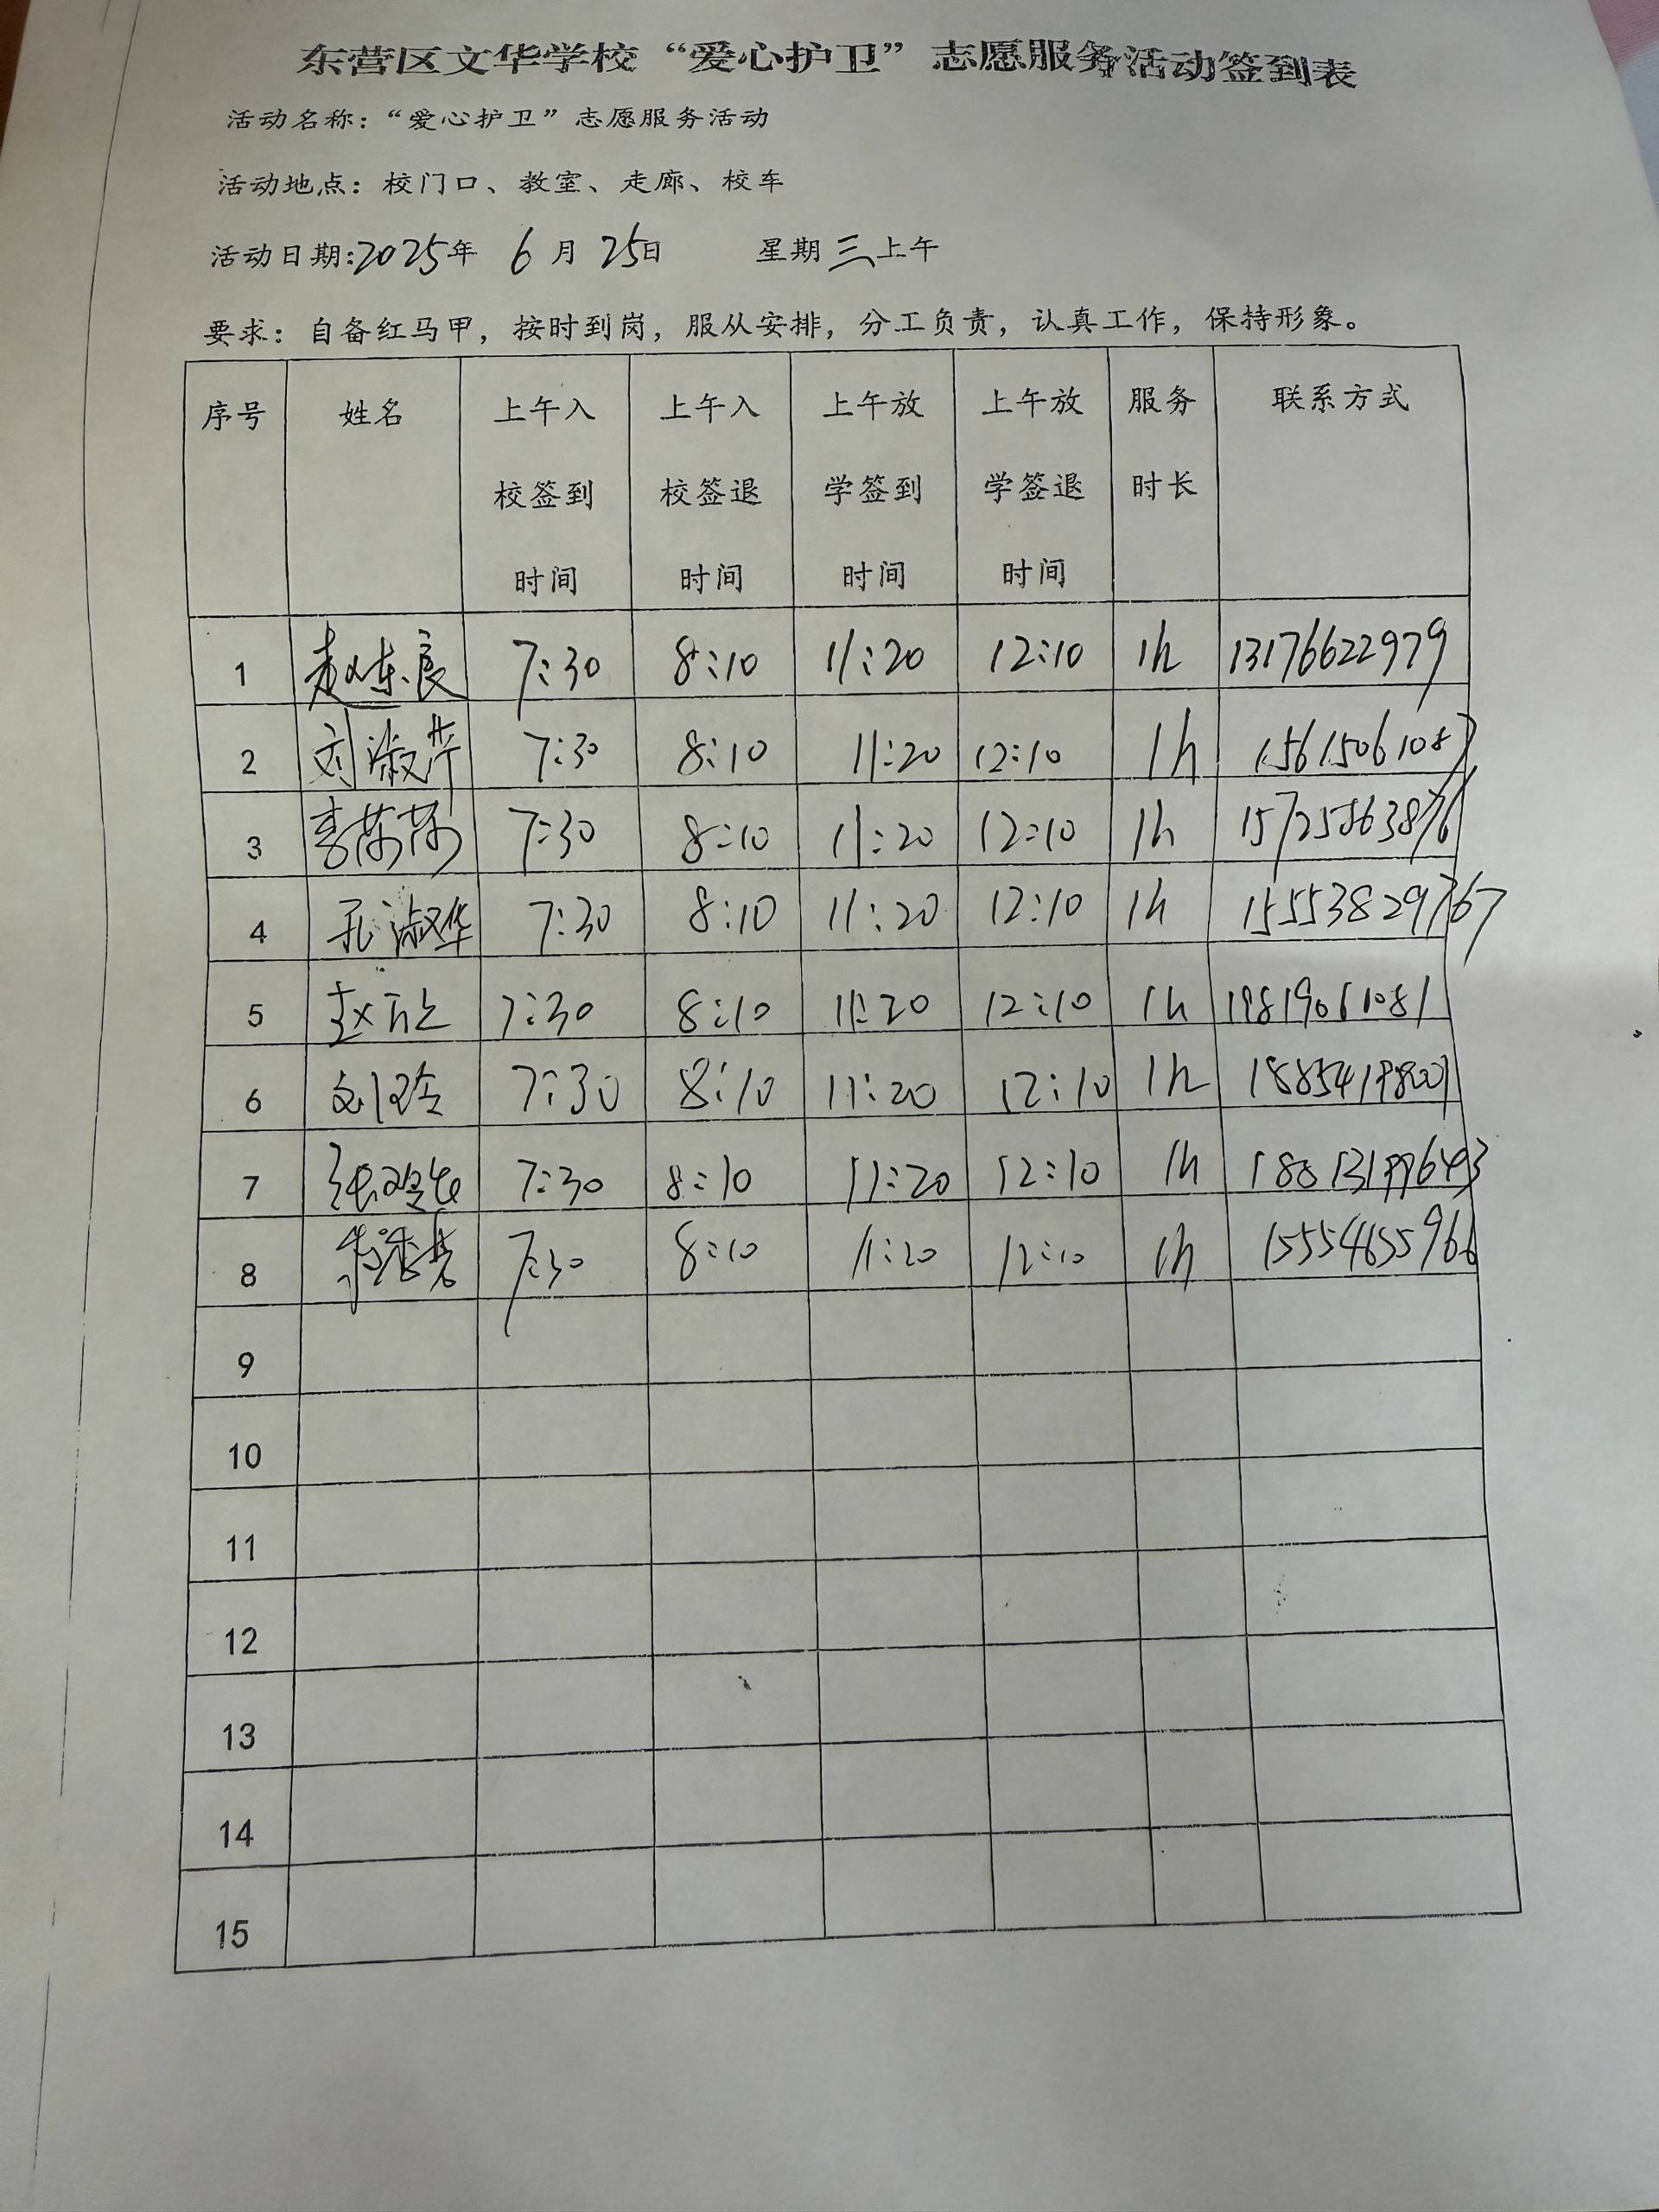 东营区文华学校“爱心护卫”志愿服务活动签到表
活动名称：“爱心护卫”志愿服务活动
活动地点：校门口、教室、走廊、校车
活动日期:2025年 6月 25日 星期三上午
要求：自备红马甲，按时到岗，服从安排，分工负责，认真工作，保持形象。
序号 姓名 上午入校签到时间 上午入校签退时间 上午放学签到时间 上午放学签退时间 服务时长 联系方式
1 7:30 8:10 11:20 12:10 1h 13176622979
2 刘淑华 7:30 8:10 11:20 12:10 1h 15615061087
3 李荷荷 7:30 8:10 11:20 12:10 1h
4 孔淑华 7:30 8:10 11:20 12:10 1h 15553829767
5 7:30 8:10 11:20 12:10 1h 19819061081
6 刘玲 7:30 8:10 11:20 12:10 1h
7 7:30 8:10 11:20 12:10 1h
8 7:30 8:10 11:20 12:10 1h 15554655966
9
10
11
12
13
14
15